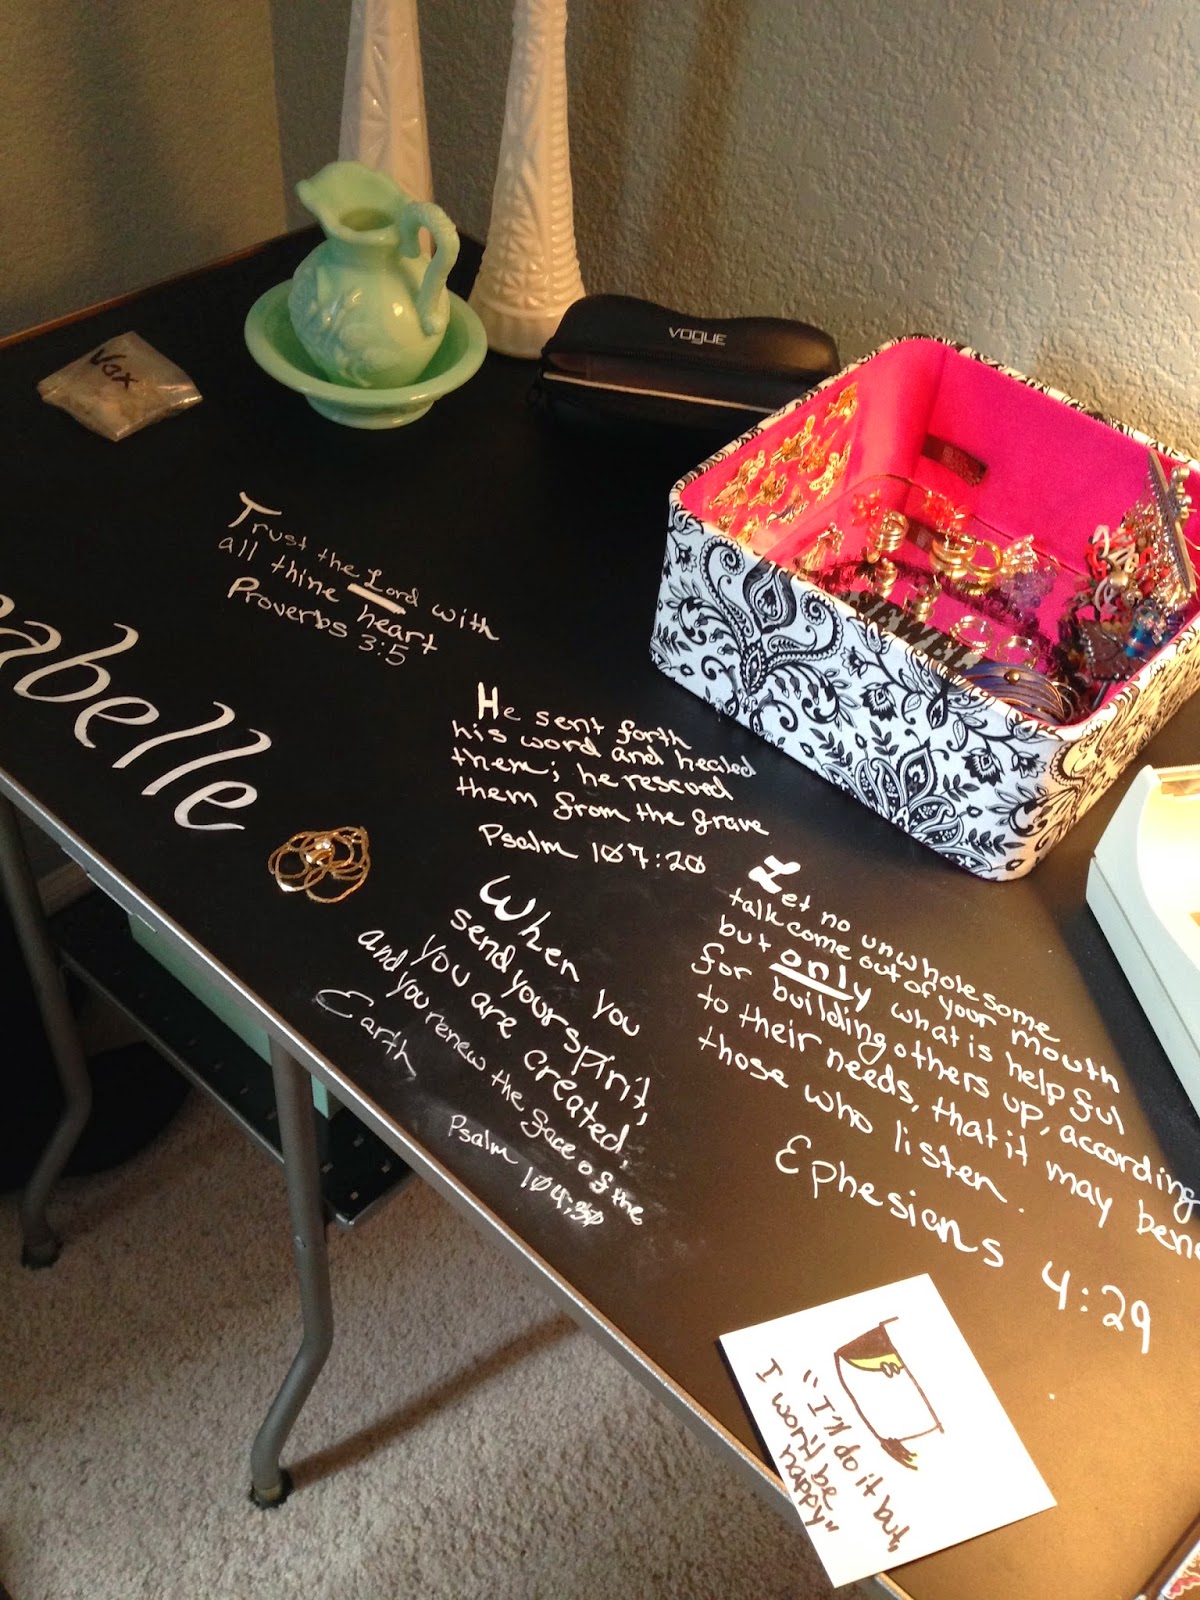 VOGUE
Wax
Trust the Lord with
all thine heart
Proverbs 3:5
abelle
He sent forth
his word and healed
them; he rescued
them from the grave
Psalm 107:20
When you
send your spirit,
you are created,
and you renew the face of the
Earth
Psalm 104:30
Let no unwholesome
talk come out of your mouth
but only what is helpful
for building others up, according
to their needs, that it may bene
those who listen.
Ephesians 4:29
"I'll do it but,
I won't be
happy"